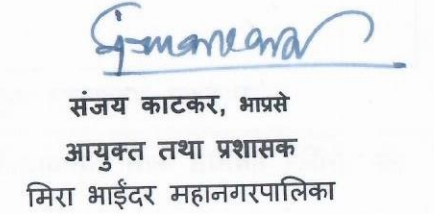 संजय काटकर, भाप्रसे
आयुक्त तथा प्रशासक
मिरा भाईंदर महानगरपालिका